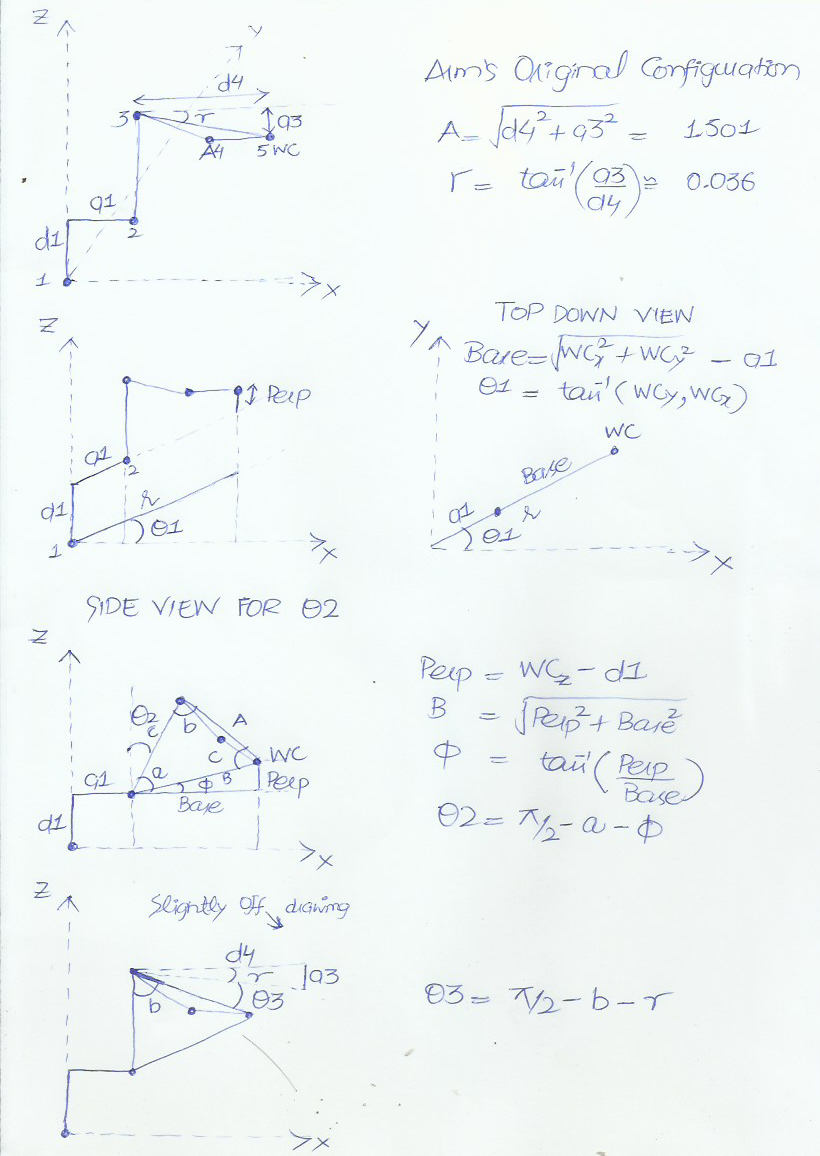 Z
Y
d4
Arm's Original Configuration
3
r
a3
A4
5 WC
A = √d4² + a3² = 1501
r = tan⁻¹(a3/d4) ≈ 0.036
a1
d1
2
1
X
Z
Perp
a1
2
d1
r
θ1
1
X
TOP DOWN VIEW
Y
Base = √WCx² + WCy² - a1
θ1 = tan⁻¹(WCy, WCx)
WC
Base
a1
r
θ1
X
SIDE VIEW FOR θ2
Z
θ2
c
b
A
C
WC
a1
a
φ
B
Perp
Base
d1
X
Perp = WCz - d1
B = √Perp² + Base²
φ = tan⁻¹(Perp/Base)
θ2 = π/2 - a - φ
Z
Slightly Off drawing
d4
r
a3
b
θ3
X
θ3 = π/2 - b - r